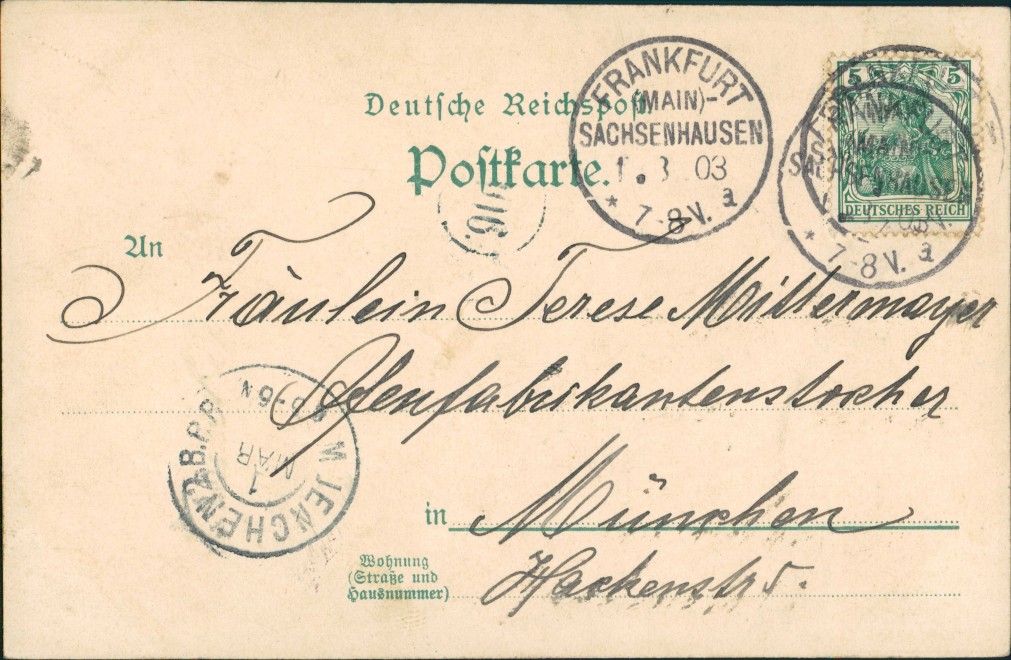 Deutsche Reichspost
Postkarte.
FRANKFURT
(MAIN)-
SACHSENHAUSEN
1. 3 03
* 7-8V. a
5 5
DEUTSCHES REICH
SACHSENHAUSEN
* 7-8V. a
An
Fräulein Terese Mittermayer
Ofenfabrikantenstochter
in München
Wohnung
(Straße und
Hausnummer)
Hackenstr 5.
MUENCHEN AB.P.P.
1
MAR
5-6N